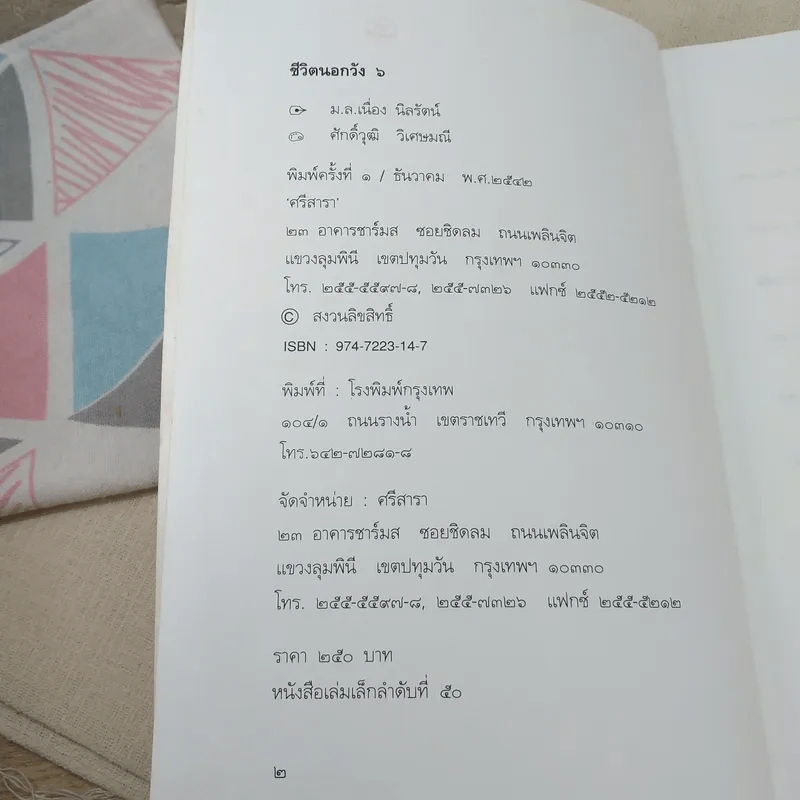 ชีวิตนอกวัง ๖
ม.ล.เนื่อง นิลรัตน์
ศักดิ์วุฒิ วิเศษมณี
พิมพ์ครั้งที่ ๑ / ธันวาคม พ.ศ.๒๕๔๒
'ศรีสารา'
๒๓ อาคารชาร์มส ซอยชิดลม ถนนเพลินจิต
แขวงลุมพินี เขตปทุมวัน กรุงเทพฯ ๑๐๓๓๐
โทร. ๒๕๕-๕๕๙๗-๘, ๒๕๕-๗๓๒๖ แฟกซ์ ๒๕๕๒-๕๒๑๒
© สงวนลิขสิทธิ์
ISBN : 974-7223-14-7
พิมพ์ที่ : โรงพิมพ์กรุงเทพ
๑๐๔/๑ ถนนรางน้ำ เขตราชเทวี กรุงเทพฯ ๑๐๓๑๐
โทร.๖๔๒-๗๒๘๑-๘
จัดจำหน่าย : ศรีสารา
๒๓ อาคารชาร์มส ซอยชิดลม ถนนเพลินจิต
แขวงลุมพินี เขตปทุมวัน กรุงเทพฯ ๑๐๓๓๐
โทร. ๒๕๕-๕๕๙๗-๘, ๒๕๕-๗๓๒๖ แฟกซ์ ๒๕๕-๕๒๑๒
ราคา ๒๕๐ บาท
หนังสือเล่มเล็กลำดับที่ ๕๐
๒